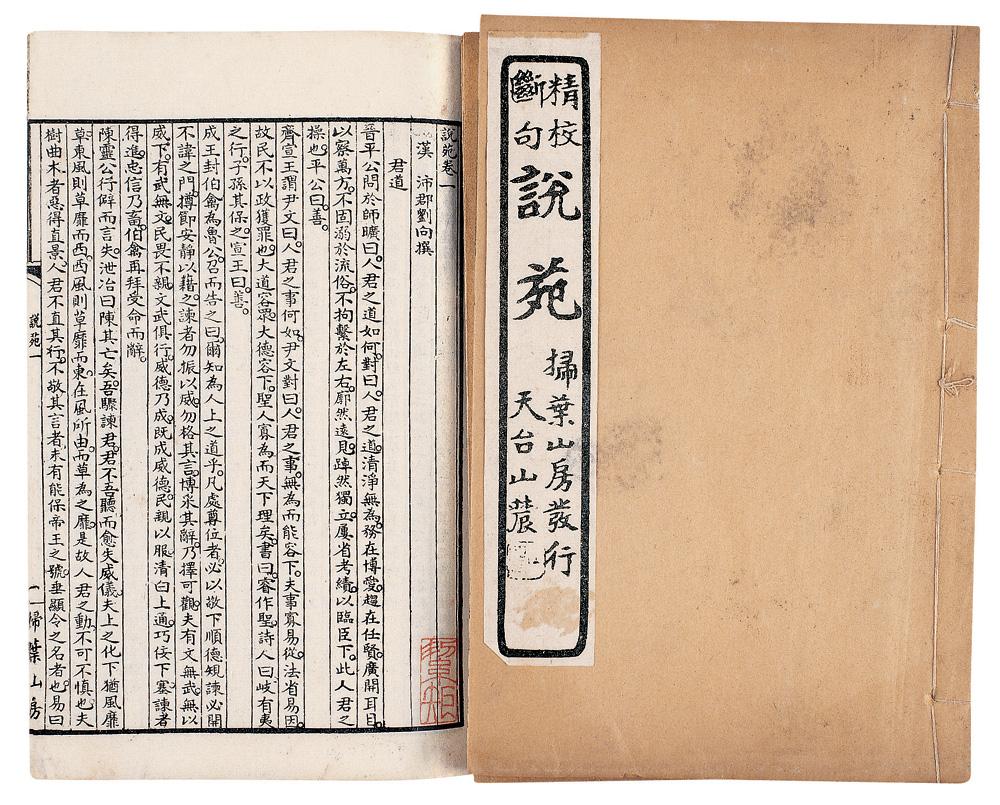 精校
斷句
說苑
掃葉山房發行
天台山農
說苑卷一
漢 沛郡劉向撰
君道
晉平公問於師曠曰。人君之道如何。對曰。人君之道。清淨無為。務在博愛。趨在任賢。廣開耳目。
以察萬方。不固溺於流俗。不拘繫於左右。廓然遠見。踔然獨立。屢省考績。以臨臣下。此人君之
操也。平公曰。善。
齊宣王謂尹文曰。人君之事何如。尹文對曰。人君之事。無為而能容下。夫事寡易從。法省易因。
故民不以政獲罪也。大道容眾。大德容下。聖人寡為而天下理矣。書曰。睿作聖。詩人曰。岐有夷
之行。子孫其保之。宣王曰。善。
成王封伯禽為魯公。召而告之曰。爾知為人上之道乎。凡處尊位者。必以敬下順德規諫。必開
不諱之門。撙節安靜以藉之。諫者勿振以威。勿格其言。博采其辭。乃擇可觀。夫有文無武。無以
威下。有武無文。民畏不親。文武俱行。威德乃成。既成威德。民親以服。清白上通。巧佞下塞。諫者
得進。忠信乃畜。伯禽再拜受命而辭。
陳靈公行僻而言失。泄冶曰。陳其亡矣。吾驟諫君。君不吾聽而愈失威儀。夫上之化下。猶風靡
草。東風則草靡而西。西風則草靡而東。在風所由。而草為之靡。是故人君之動。不可不慎也。夫
樹曲木者。惡得直景。人君不直其行。不敬其言者。未有能保帝王之號。垂顯令之名者也。易曰
說苑一
一 掃葉山房